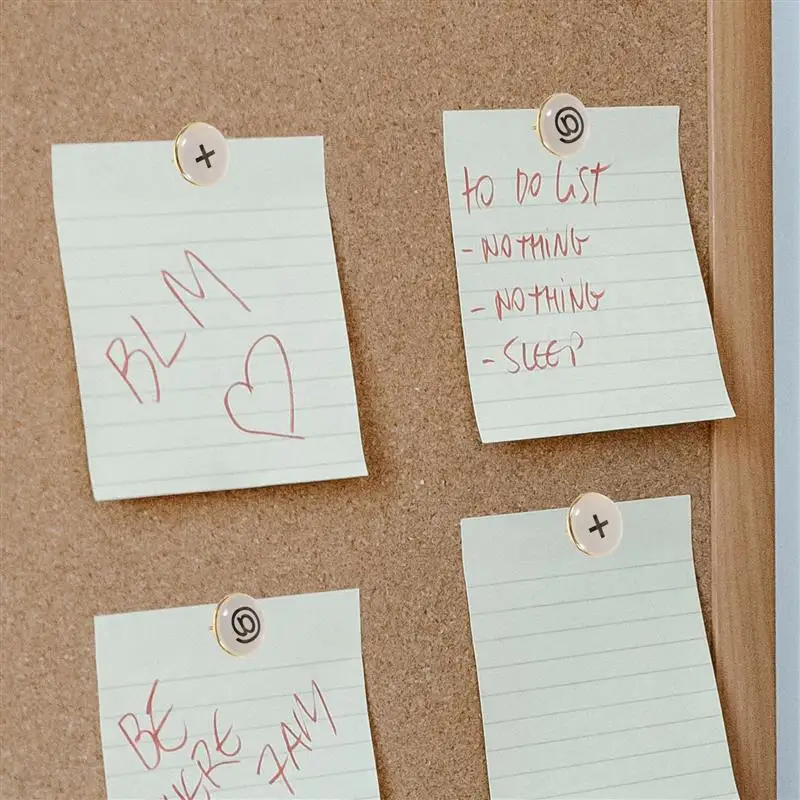 +
BLM
@
TO DO LIST
- NOTHING
- NOTHING
- SLEEP
@
BE
HERE
7AM
+